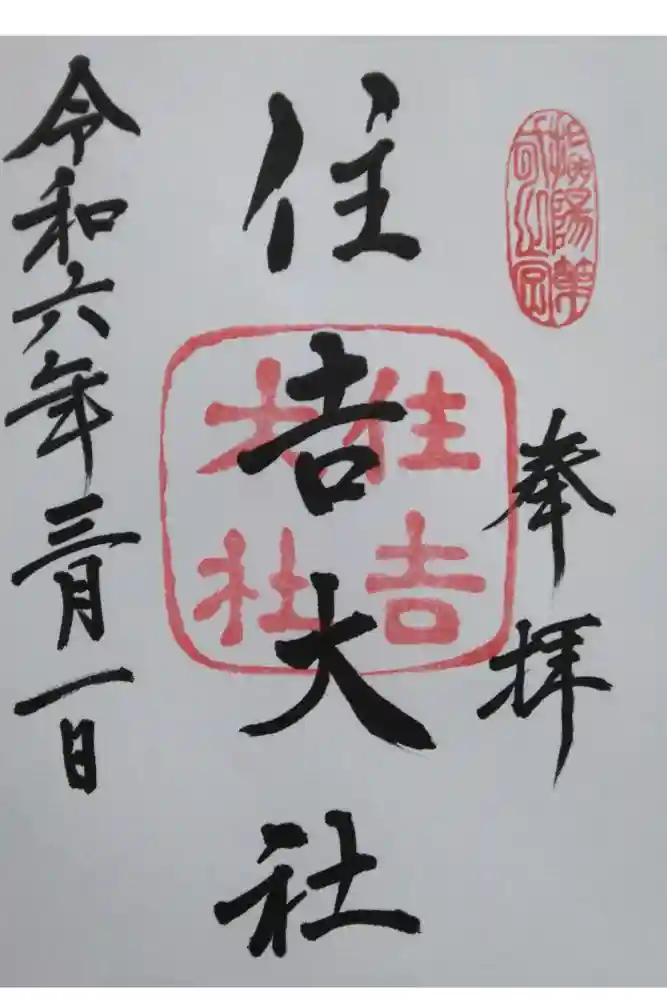 攝陽第
奉拝
住吉大社
住吉
大社
令和六年三月一日